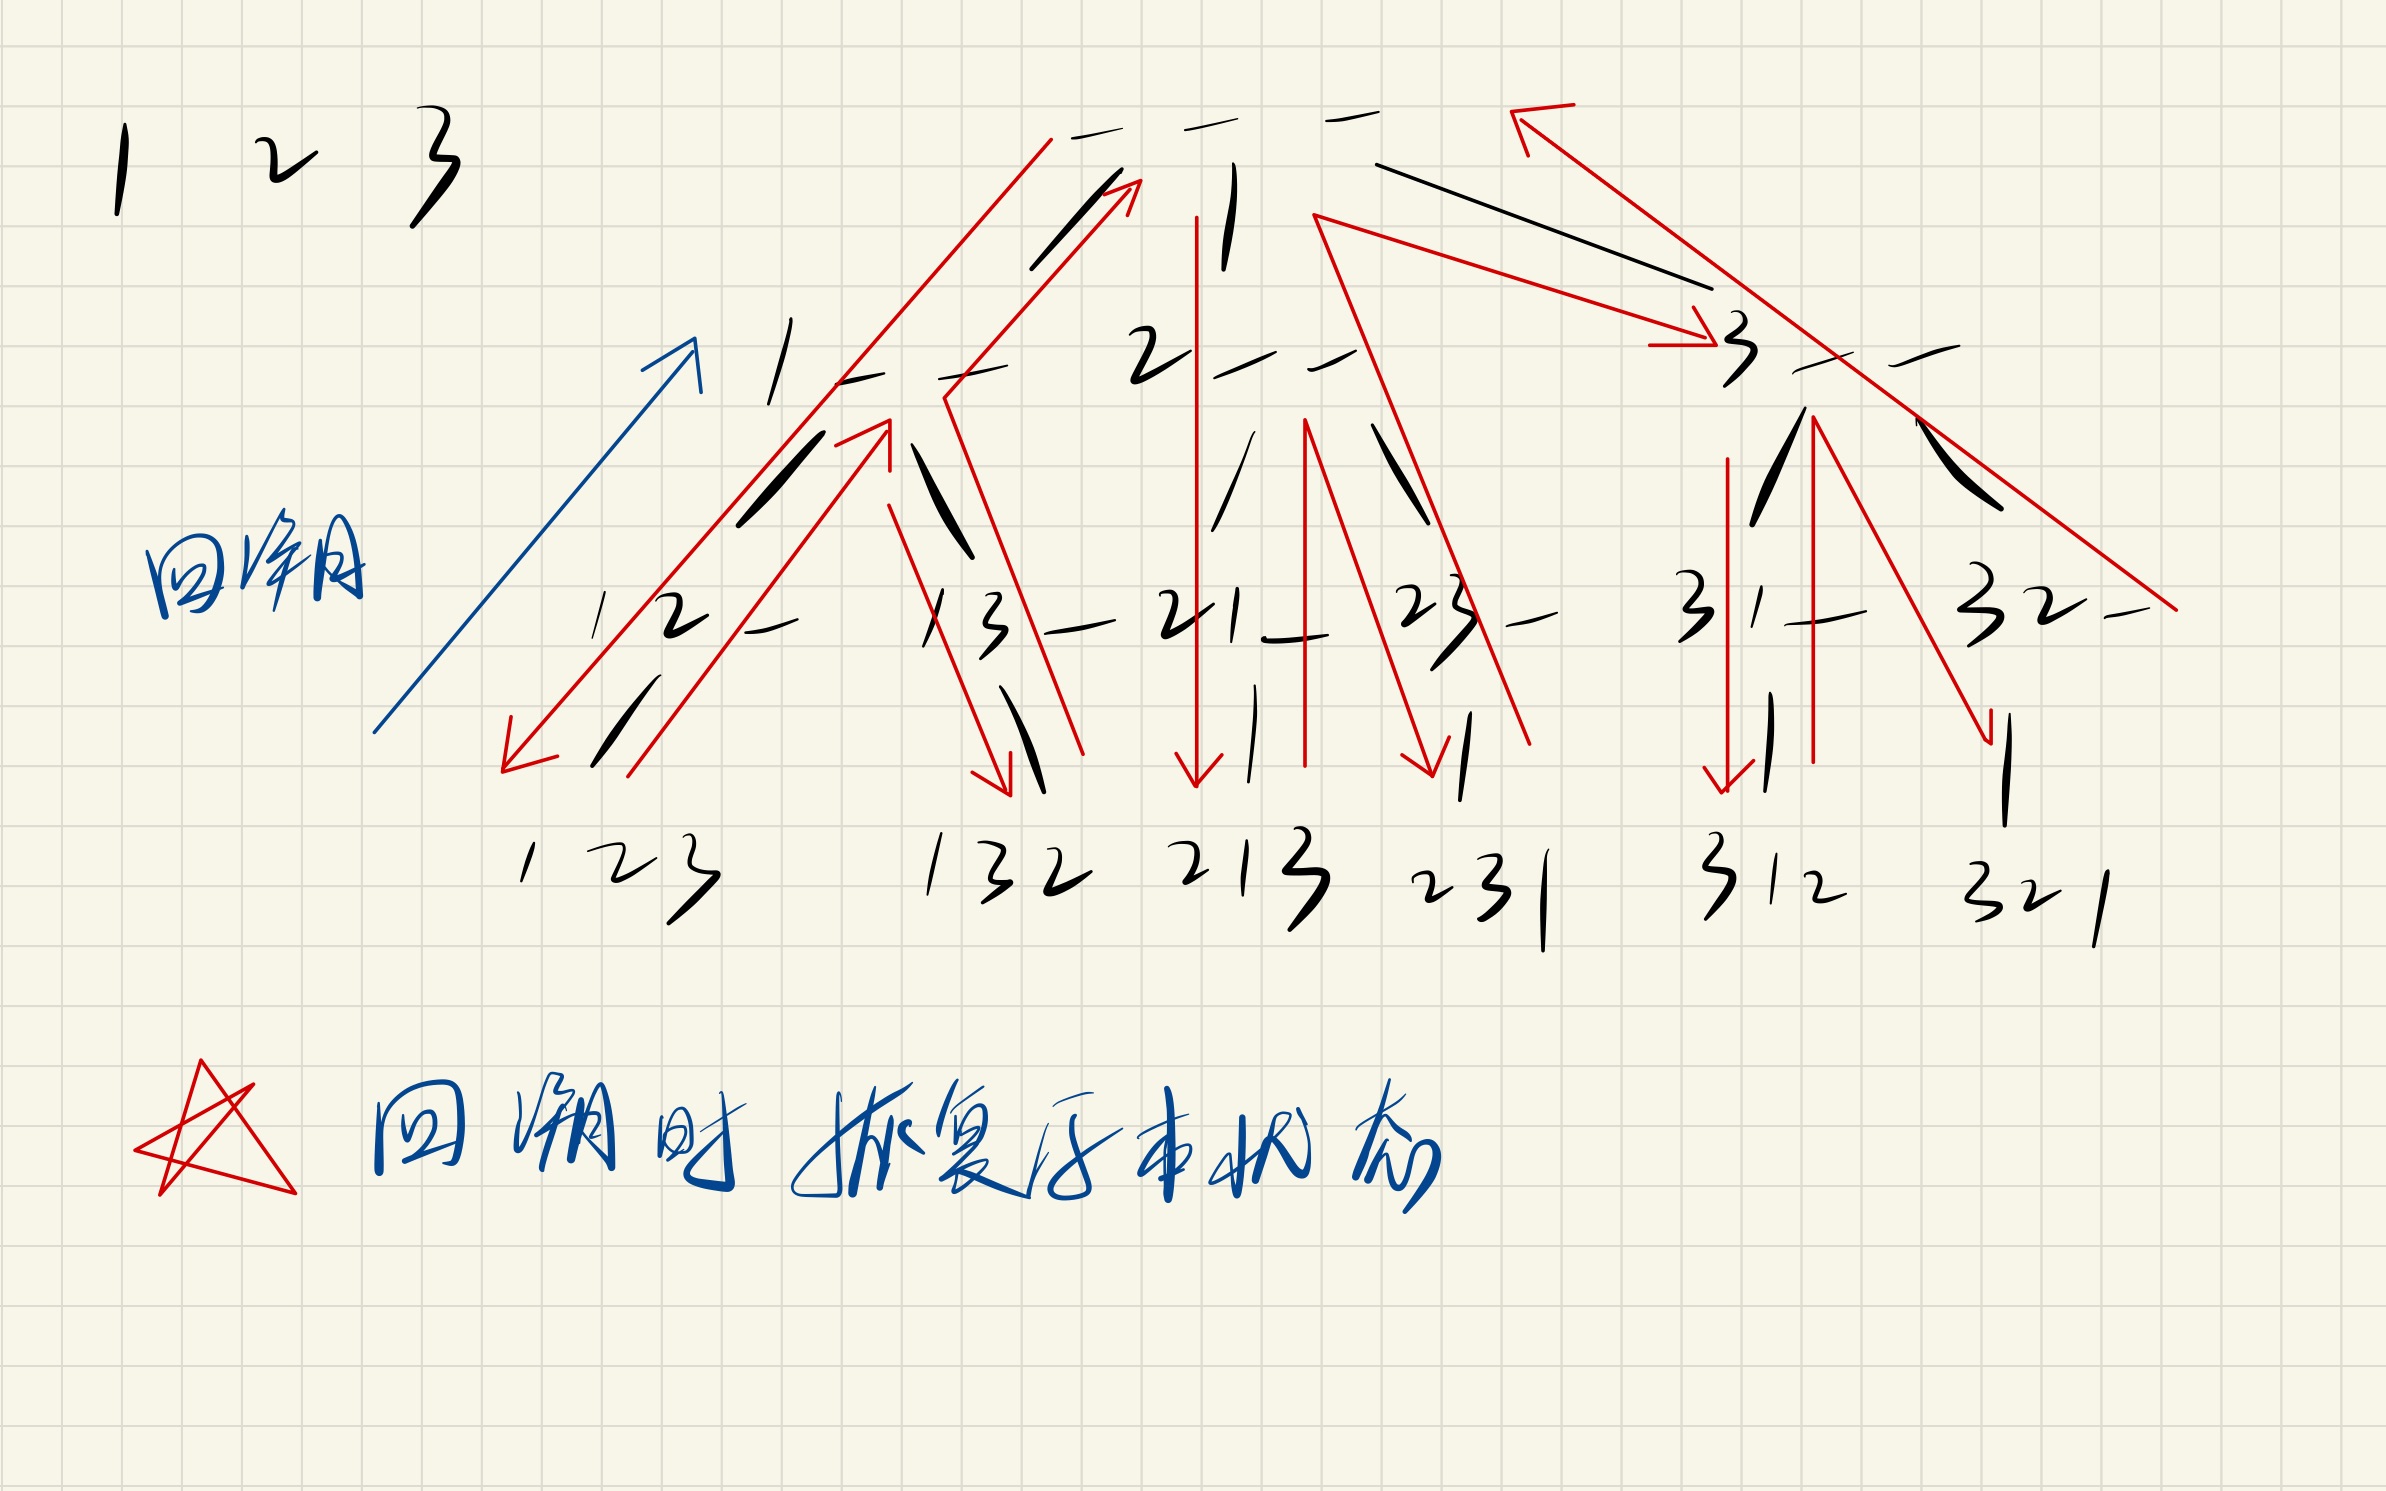 1 2 3
_ _ _
1 _ _ 2 _ _ 3 _ _
回溯
1 2 _ 1 3 _ 2 1 _ 2 3 _ 3 1 _ 3 2 _
1 2 3 1 3 2 2 1 3 2 3 1 3 1 2 3 2 1
回溯时 恢复